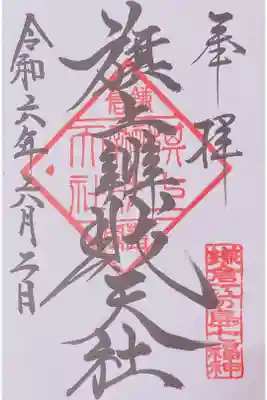 奉拝
旗上辨財天社
令和六年六月二日
鎌倉
鎌倉江の島七福神